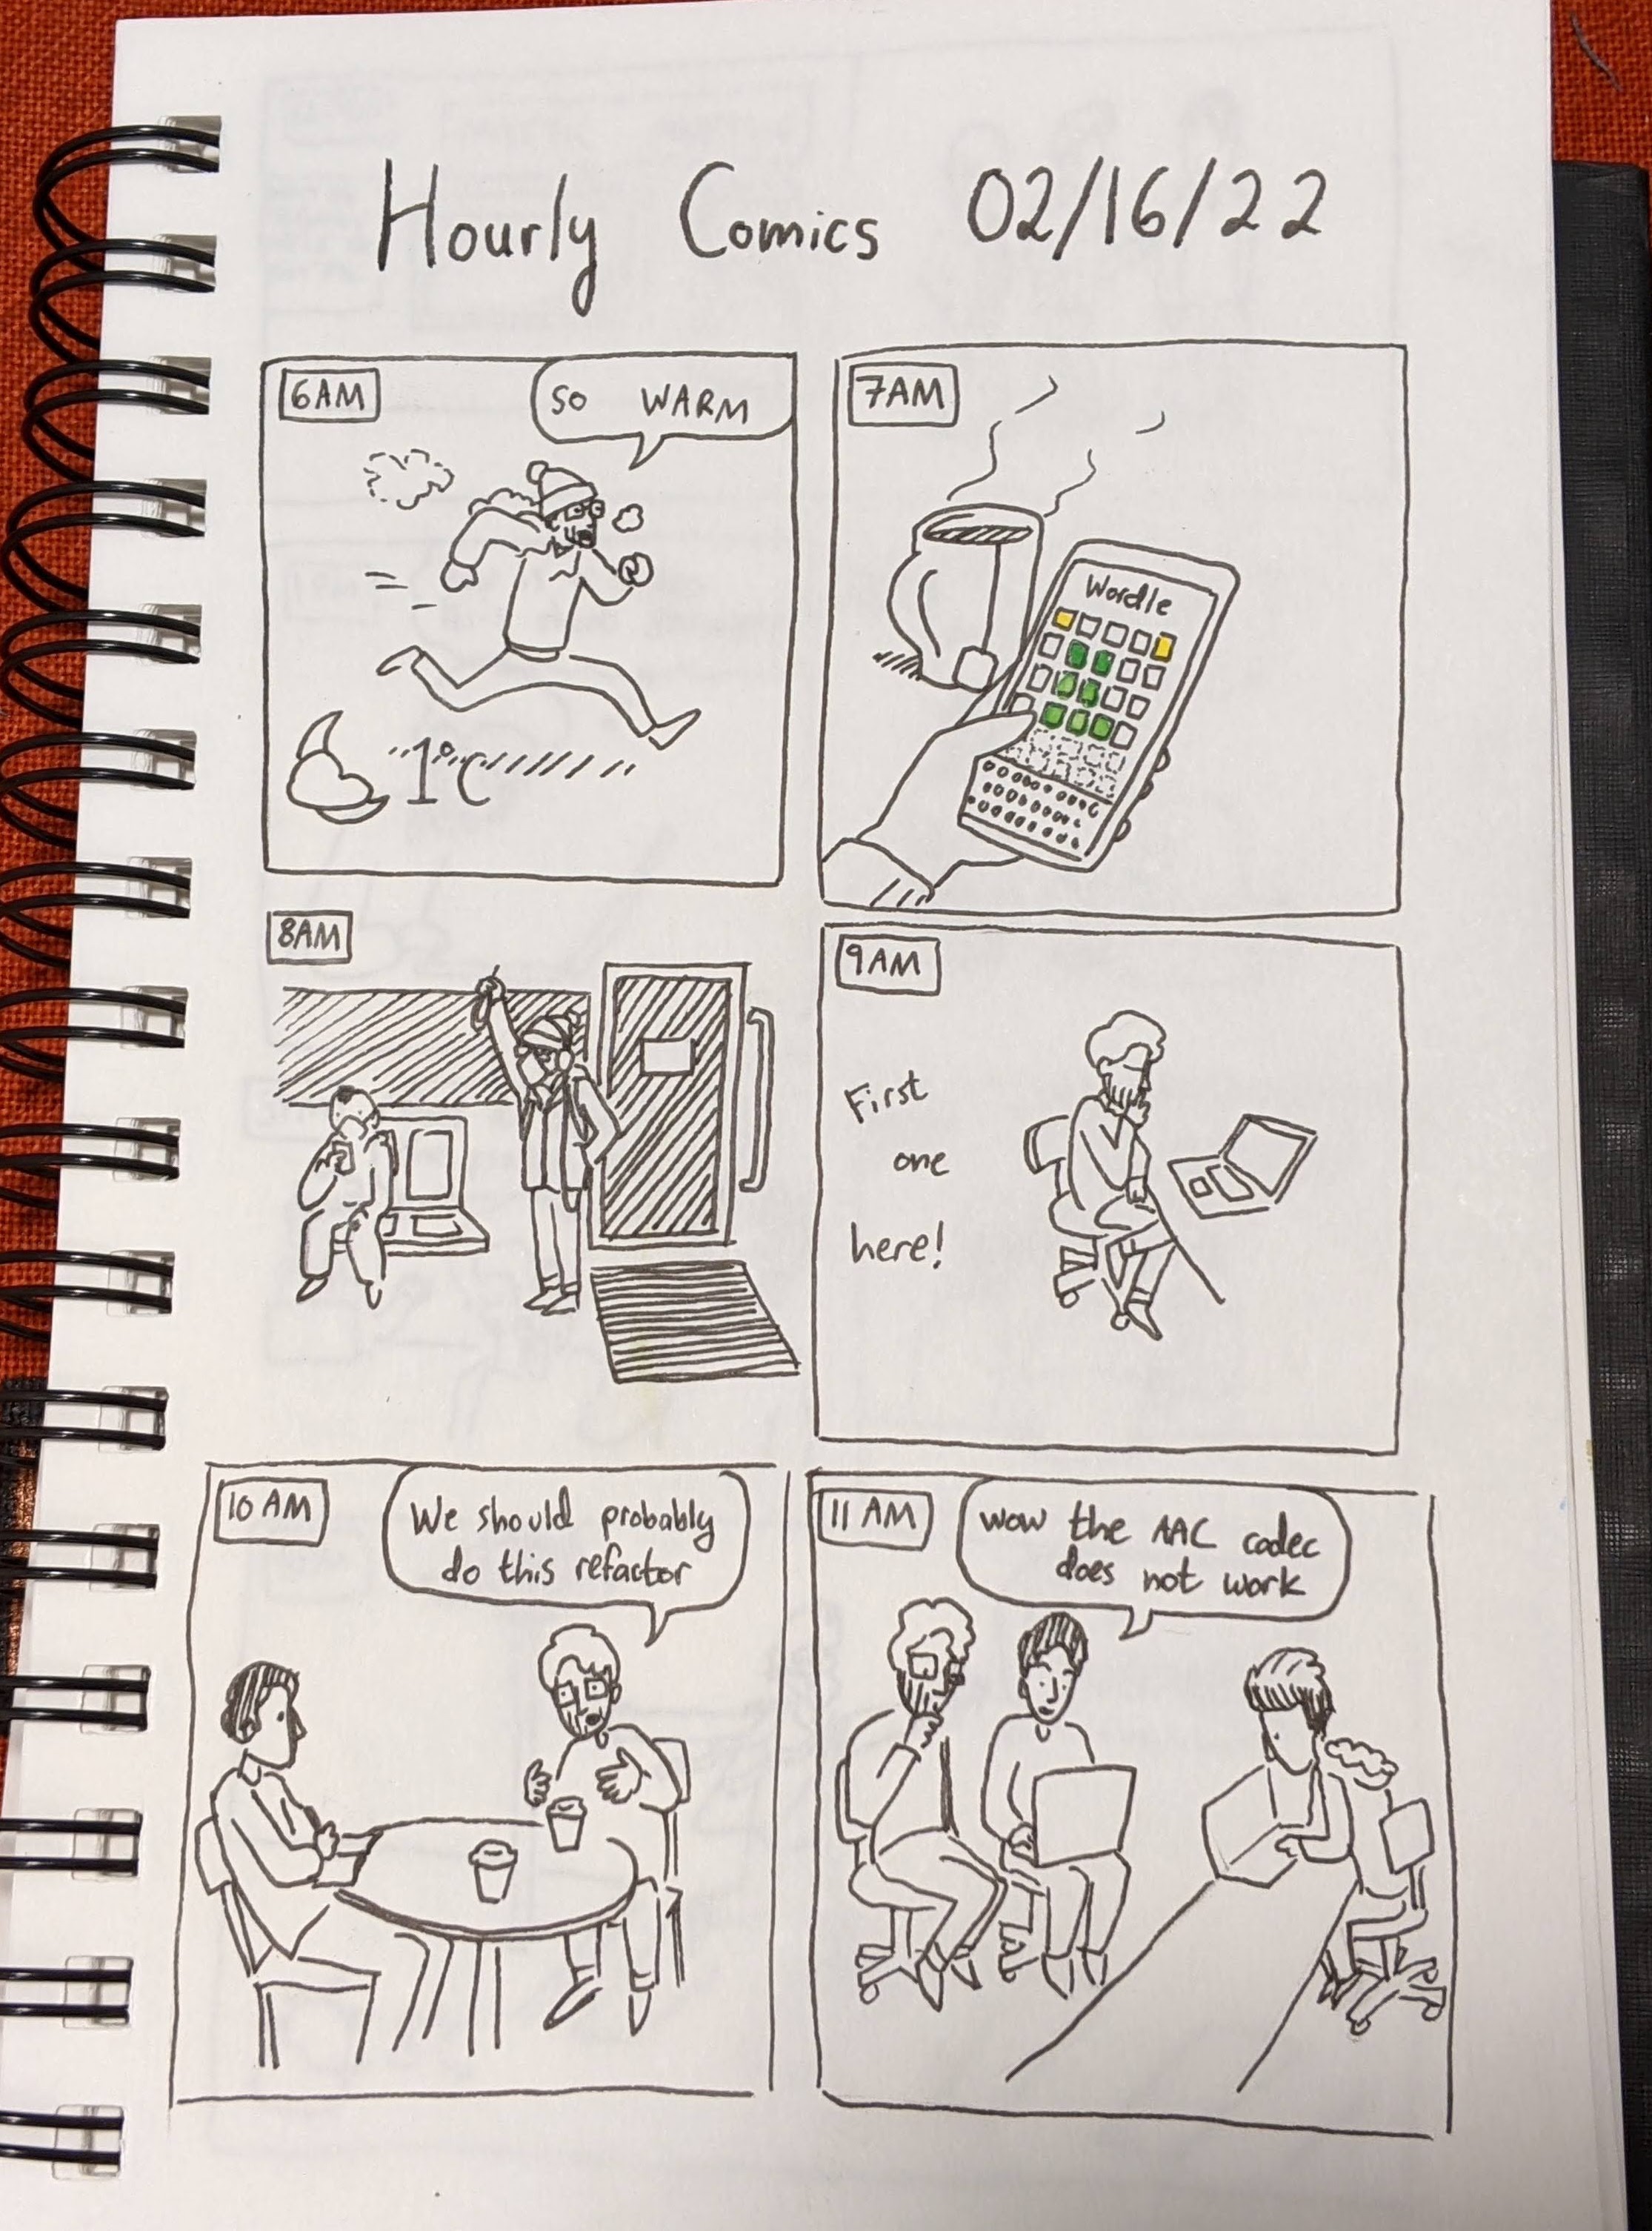 Hourly Comics 02/16/22
6AM
so WARM
1°C
7AM
Wordle
8AM
9AM
First
one
here!
10 AM
We should probably
do this refactor
11 AM
wow the AAC codec
does not work